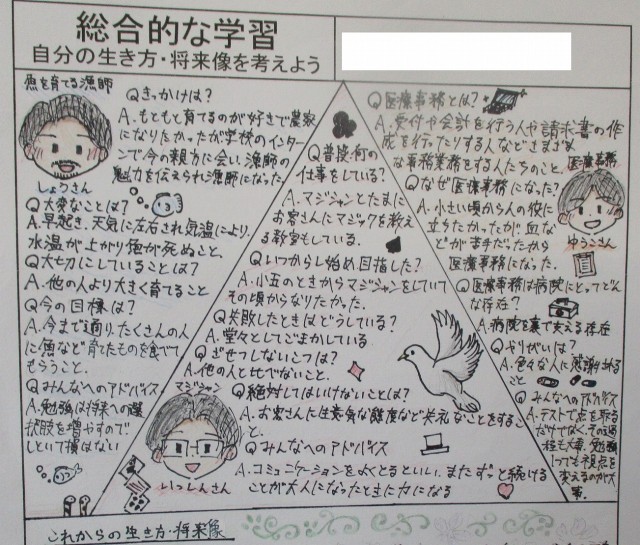 総合的な学習
自分の生き方・将来像を考えよう
魚を育てる漁師
しょうさん
Qきっかけは?
A.もともと育てるのが好きで農家
になりたかったが学校のインター
ンで今の親方に会い、漁師の
魅力を伝えられ漁師になった。
Q大変なことは?
A.早起き、天気に左右され気温により、
水温が上がり魚が死ぬこと、
Q大切にしていることは?
A.他の人より大きく育てること
Q今の目標は?
A.今まで通り、たくさんの人
に魚など育てたものを食べて
もらうこと.
Qみんなへのアドバイス
A.勉強は将来への選
択肢を増やすので
しといて損はない
Q普段、何の
仕事をしている?
A.マジシャンとたまに
お客さんにマジックを教え
る教室もしている.
Qいつからし始め目指した?
A.小五のときからマジシャンをしていて
その頃からなりたかった.
Q失敗したときはどうしている?
A.堂々としてごまかしている
Qざせつしないこつは?
A.他の人と比べないこと.
マジシャン
いっしんさん
Q絶対してはいけないことは?
A.お客さんに生意気な態度など失礼なことをするこ
と.
Qみんなへのアドバイス
A.コミュニケーションをよくとるといい、またずっと続ける
ことが大人になったときに力になる
Q医療事務とは?
A.受付や会計を行う人や請求書の作
成を行ったりする人などさまざま
な事務業務をする人たちのこと.
医療事務
ゆうこさん
Qなぜ医療事務になった?
A.小さい頃から人の役に
立ちたかったが血な
どが苦手だったから
医療事務になった.
Q医療事務は病院にとってどん
な存在?
A.病院を裏で支える存在
Qやりがいは?
A.色々な人に感謝される
こと
Qみんなへのアドバイス
A.テストで点を取る
だけでなく、その過
程も大事、勉強
1つでも視点を
変えるのが大
事.
これからの生き方・将来像